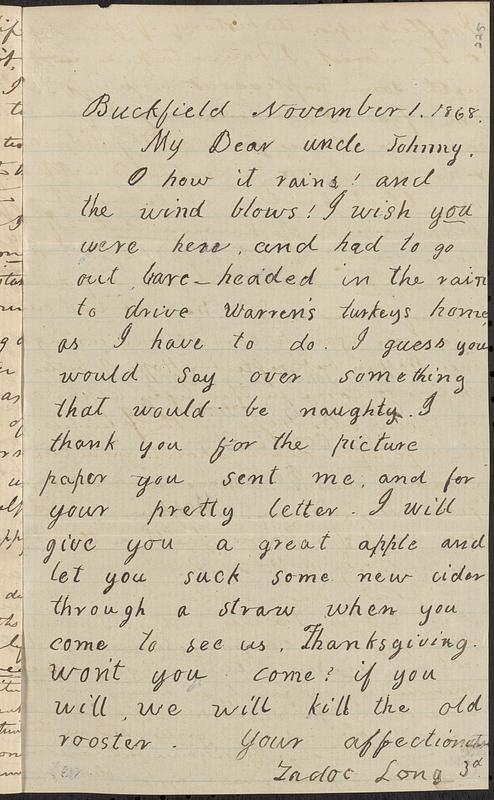 Buckfield November 1. 1868.
My Dear uncle Johnny.
O how it rains! and
the wind blows! I wish you
were here, and had to go
out bare-headed in the rain
to drive Warren's turkeys home
as I have to do. I guess you
would say over something
that would be naughty. I
thank you for the picture
paper you sent me, and for
your pretty letter. I will
give you a great apple and
let you suck some new cider
through a straw when you
come to see us, Thanksgiving.
Won't you come? if you
will, we will kill the old
rooster. Your affectionate
Zadoc Long 3d